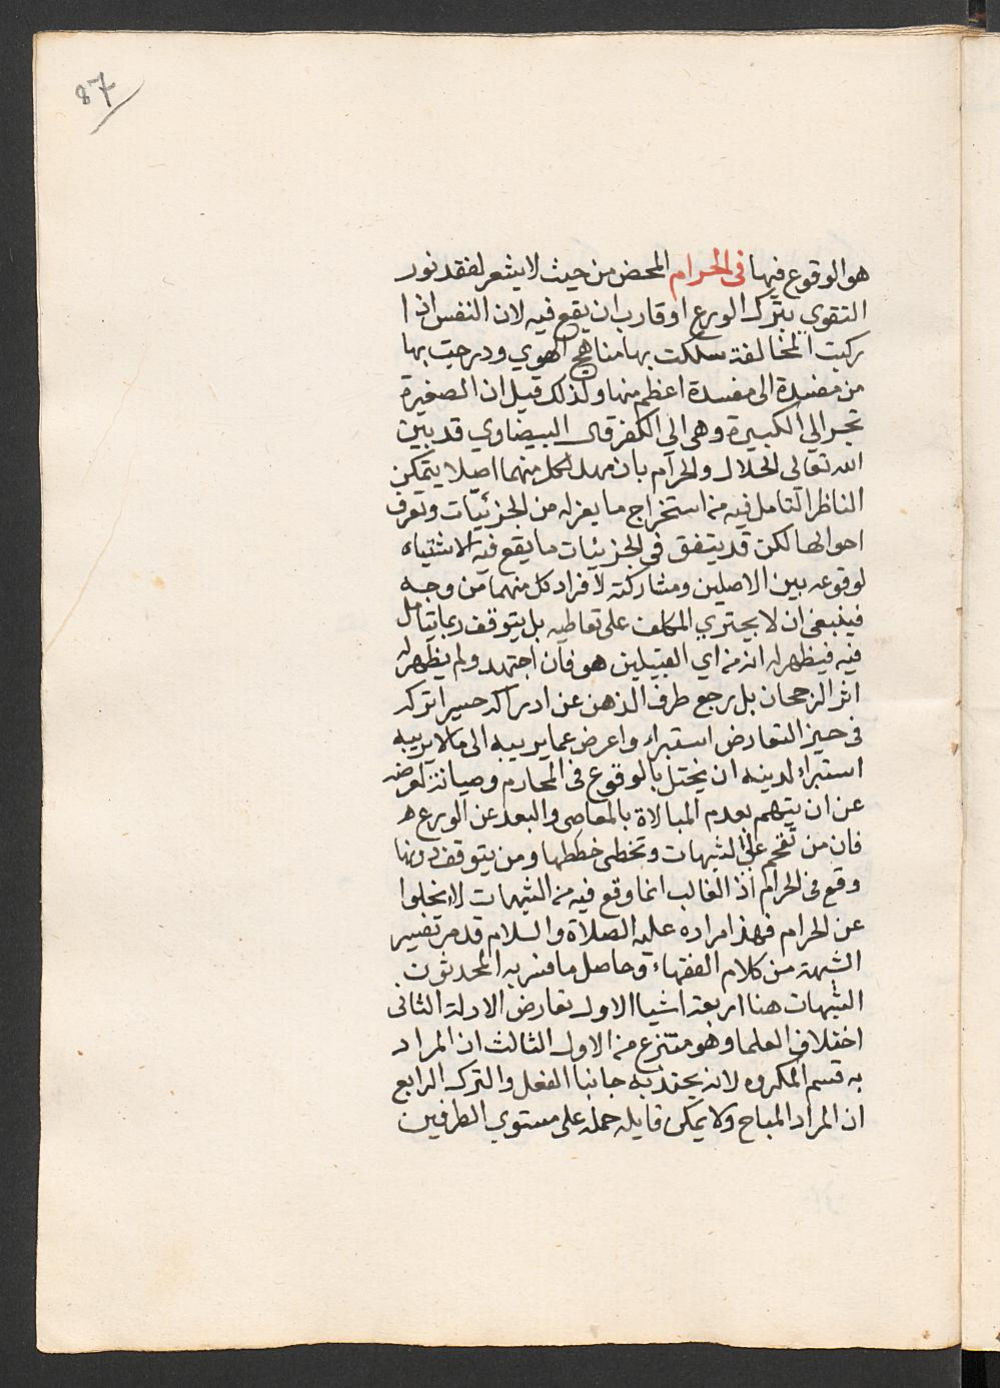 87
هو الوقوع فيها فى الحرام المحض من حيث لا يشعر لفقد نور
التقوي بترك الورع او قارب ان يقع فيه لان النفس اذا
ركبت المخالفة سلكت بها مناهج الهوي ودرجت بها
من مفسدة الى مفسدة اعظم منها ولذلك قيل ان الصغيرة
تجر الي الكبيرة وهى الي الكفر قال البيضاوي قد بين
الله تعالى الحلال والحرام بان مهد لكل منهما اصلا يتمكن
الناظر التامل فيه من استخراج ما يعزله من الجزئيات وتعرف
احوالها لكن قد يتفق فى الجزئيات ما يقع فيه الاشتباه
لوقوعه بين الاصلين ومشاركته لافراد كل منهما من وجه
فينبغى ان لا يجتري المكلف على تعاطيه بل يتوقف ربما يتامل
فيه فيظهر له انه من اي القبيلين هو فان اجتهد ولم يظهر له
اثر الرجحان بل رجع طرف الذهن عن ادراكه حسيرا تركه
فى حيز التعارض استبراء واعرض عما يريبه الى ما لا يريبه
استبراء لدينه ان يختل بالوقوع فى المحارم وصيانة لعرضه
عن ان يتهم بعدم المبالاة بالمعاصى والبعد عن الورع ه
فان من تقحم على الشبهات وتخطى خططها ومن يتوقف دونها
وقع فى الحرام اذ الغالب انما وقع فيه من الشبهات لا يخلوا
عن الحرام فهذا مراده عليه الصلاة والسلام قد مر تفسير
الشبهة من كلام الفقهاء وحاصل ما فسر به المحدثون
الشبهات هنا اربعة اشيا الاول تعارض الادلة الثانى
اختلاف العلما وهو منتزع من الاول الثالث ان المراد
به قسم المكروه لانه يجتذبه جانبا الفعل والترك الرابع
ان المراد المباح ولا يمكن قايله حمله على مستوي الطرفين